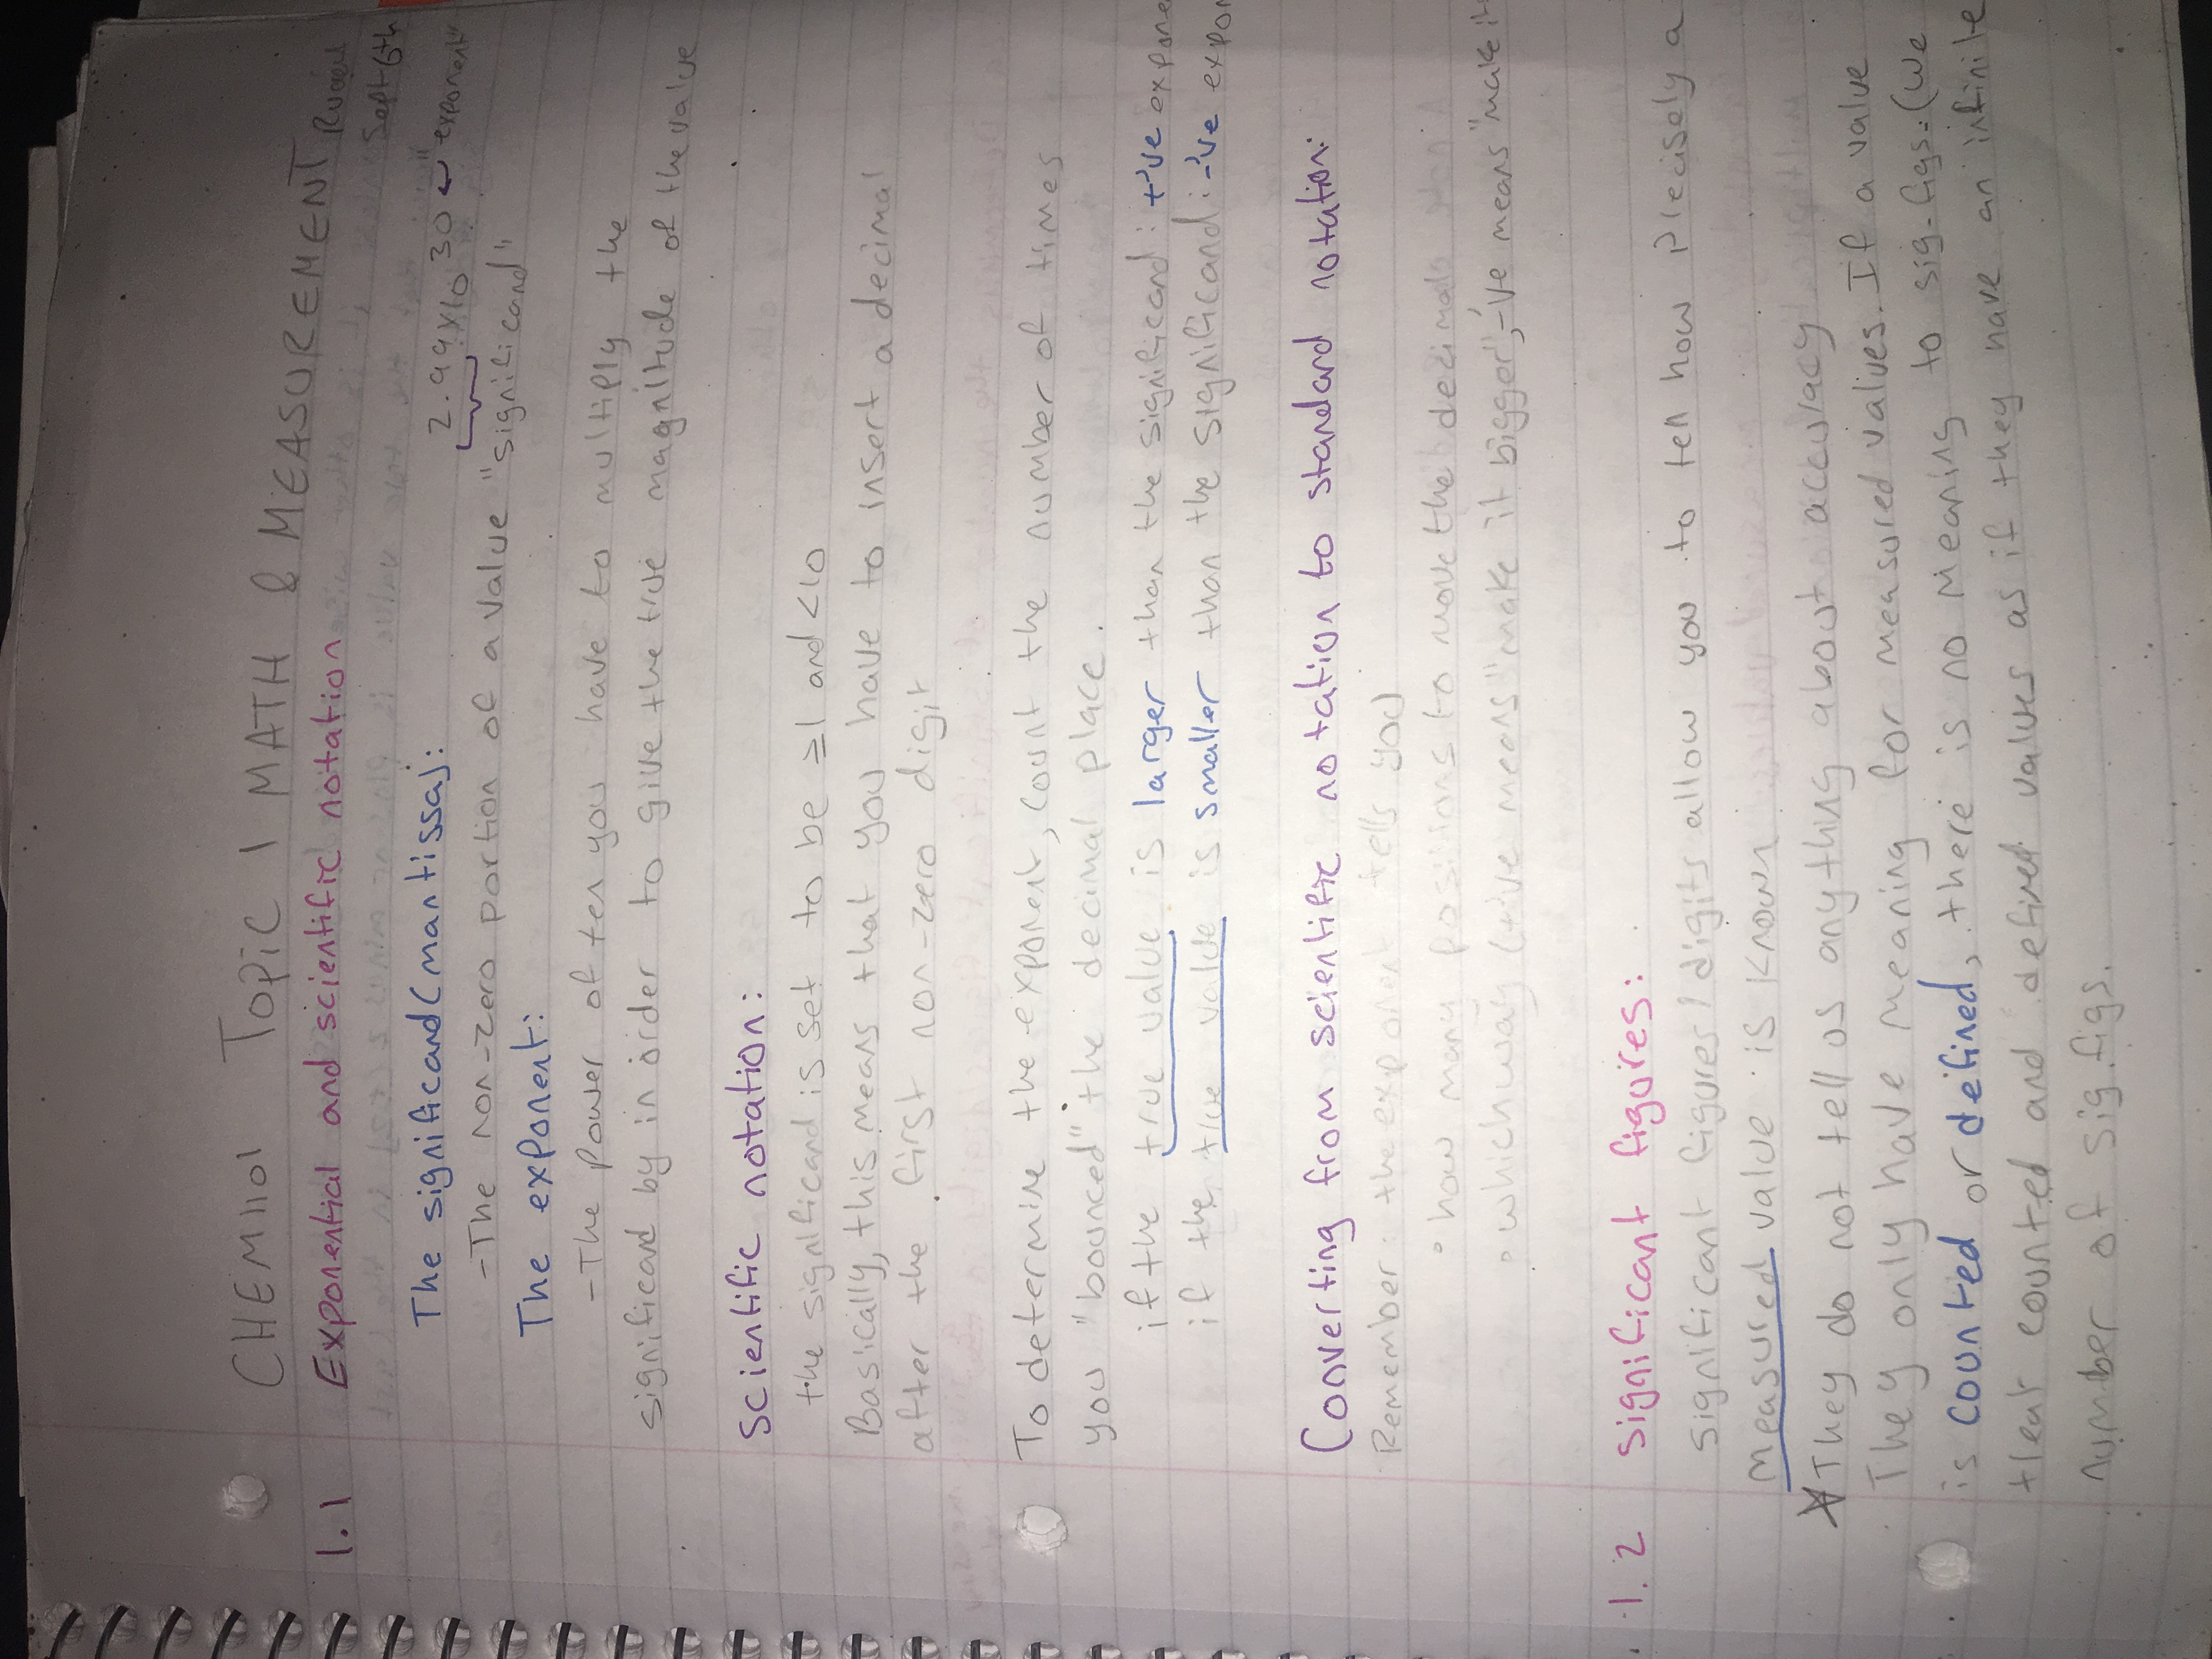 CHEM1101 TOPIC 1 MATH & MEASUREMENT
1.1 Exponential and scientific notation
Sept 6th
The significand (mantissa):
2.99x10 30 "exponent"
- The non-zero portion of a value "significand"
The exponent:
- The power of ten you have to multiply the
significand by in order to give the true magnitude of the value
Scientific notation:
the significand is set to be ≥1 and <10
Basically, this means that you have to insert a decimal
after the first non-zero digit
To determine the exponent, count the number of times
you "bounced" the decimal place.
if the true value is larger than the significand: +'ve expone
if the true value is smaller than the significand: -'ve expon
Converting from scientific notation to standard notation:
Remember: the exponent tells you
• how many positions to move the decimal
• which way (+'ve means "make it bigger", -'ve means "make it
1.2 significant figures:
significant figures/digits allow you to tell how precisely a
measured value is known
* They do not tell us anything about accuracy
They only have meaning for measured values. If a value
is counted or defined, there is no meaning to sig-figs. (we
treat counted and defined values as if they have an infinite
number of sig.figs.